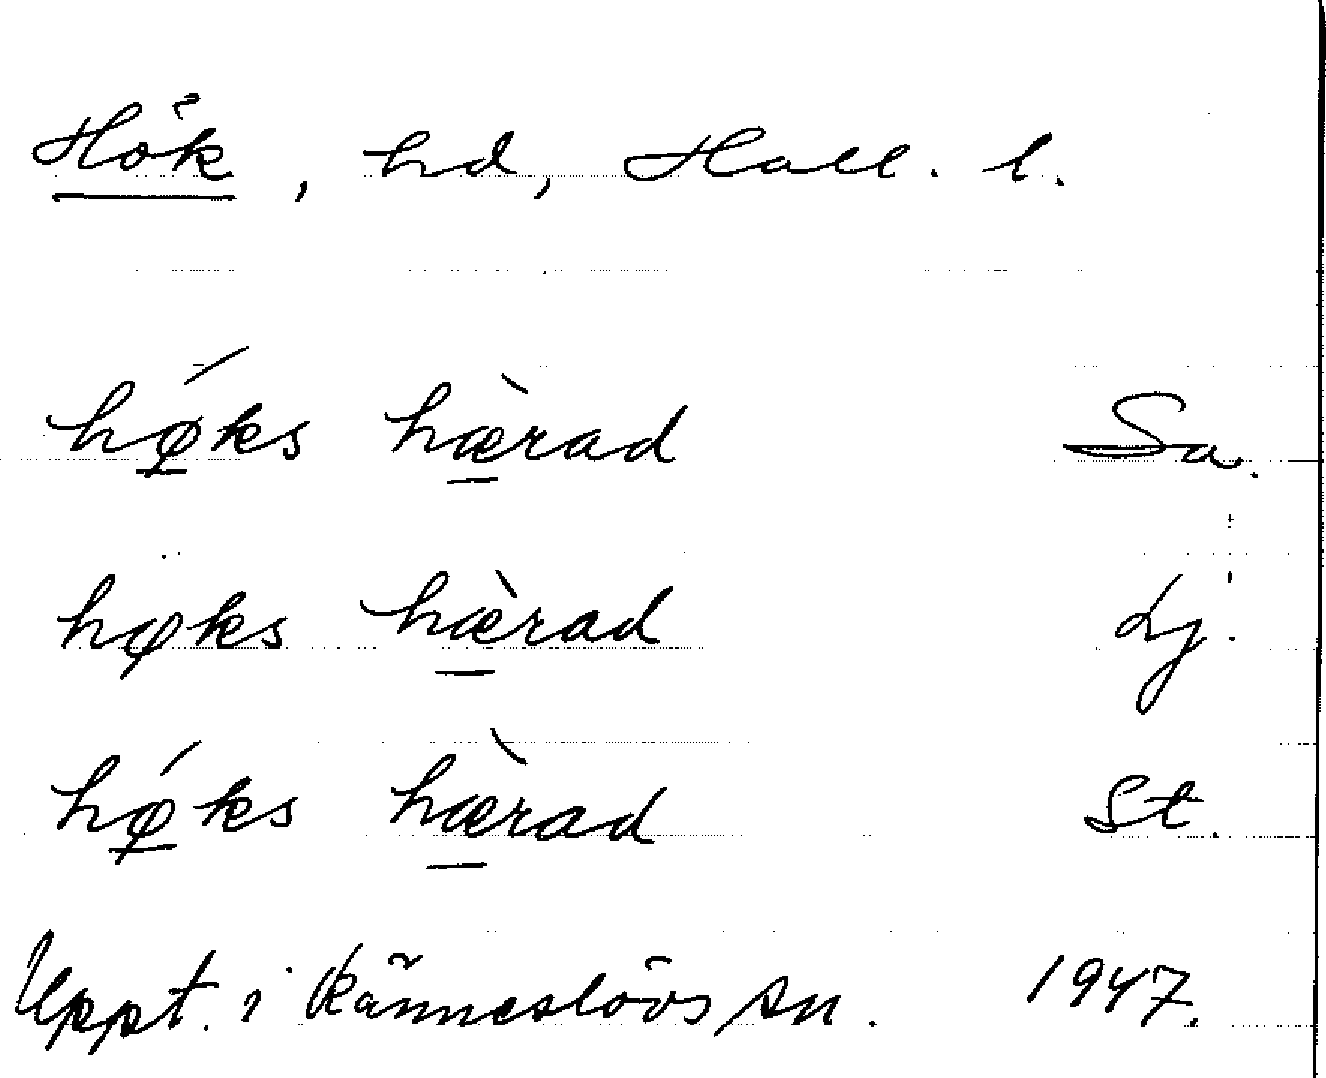 Hök, hd, Hall. l.
hǿks hæ̀rad Sa.
høks hæ̀rad Lj.
hǿks hæ̀rad St.
Uppt. i Ränneslövs sn. 1947.